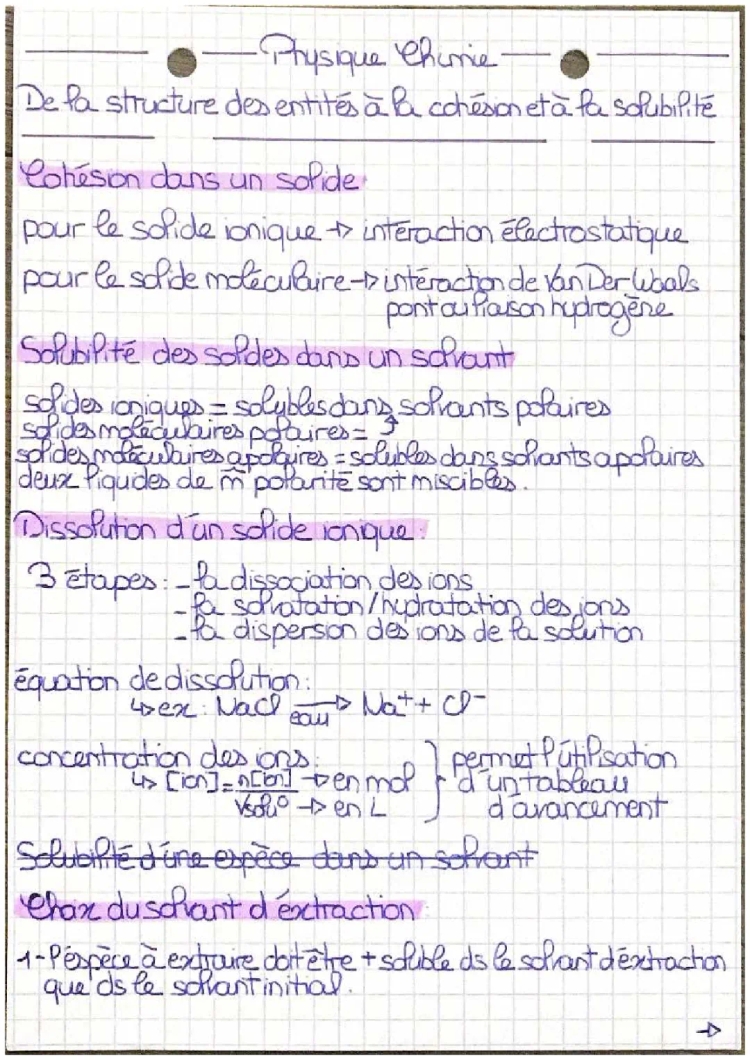 Physique Chimie
De la structure des entités à la cohésion et à la solubilité
Cohésion dans un solide
pour le solide ionique → intéraction électrostatique
pour le solide moléculaire → intéraction de Van Der Waals
pont ou liaison hydrogène
Solubilité des soldes dans un solvant
solides ioniques = solubles dans solvants polaires
solides moléculaires polaires = ↗
solides moléculaires apolaires = solubles dans solvants apolaires
deux liquides de m̄ polarité sont miscibles.
Dissolution d'un solide ionique :
3 étapes : - la dissociation des ions
- la solvatation/hydratation des ions
- la dispersion des ions de la solution
équation de dissolution :
↳ ex : NaCl →eau Na⁺ + Cl⁻
concentration des ions : } permet l'utilisation
↳ [ion] = n[ion] → en mol } d'un tableau
Vsolu° → en L } d'avancement
Solubilité d'une espèce dans un solvant
Choix du solvant d'éxtraction :
1 - l'éspèce à extraire doit être + soluble ds le solvant d'éxtraction
que ds le solvant initial.
→